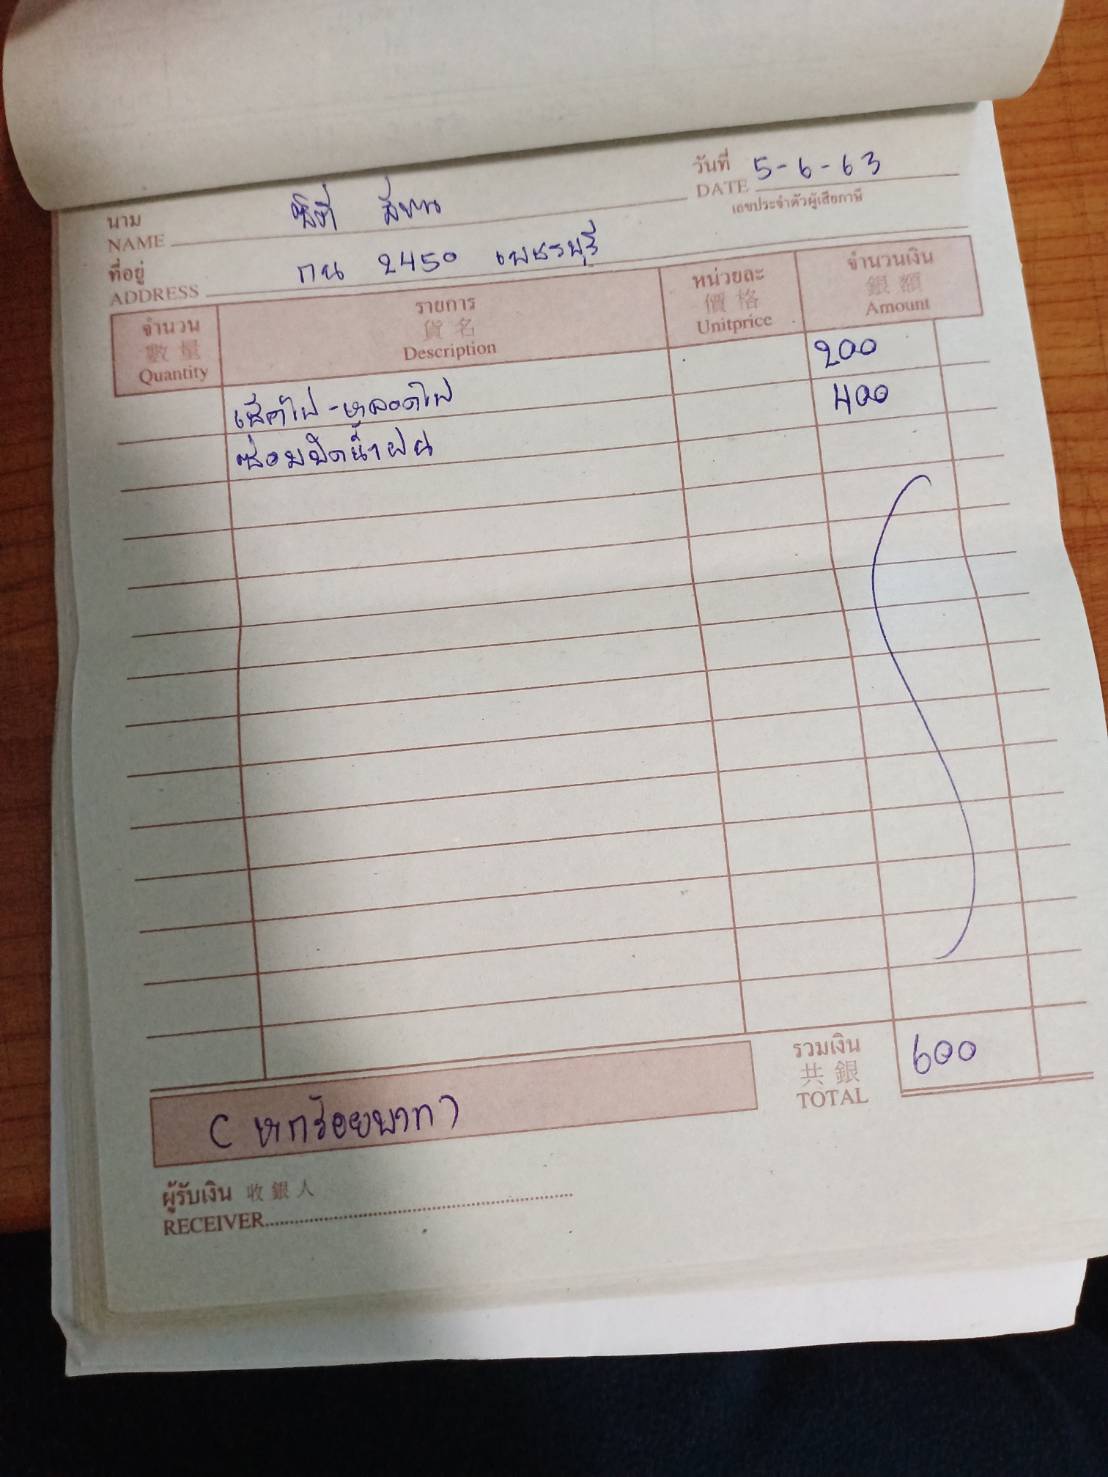 นาม
วันที่ 5-6-63
NAME
DATE
เลขประจำตัวผู้เสียภาษี
ที่อยู่ กน 2450 เพชรบุรี
ADDRESS
จำนวน รายการ หน่วยละ จำนวนเงิน
數量 貨名 價格 銀額
Quantity Description Unitprice Amount
เช็คไฟ-หลอดไฟ 200
ซ่อมปัดน้ำฝน 400
รวมเงิน 600
共銀
TOTAL
(หกร้อยบาท)
ผู้รับเงิน 收銀人
RECEIVER